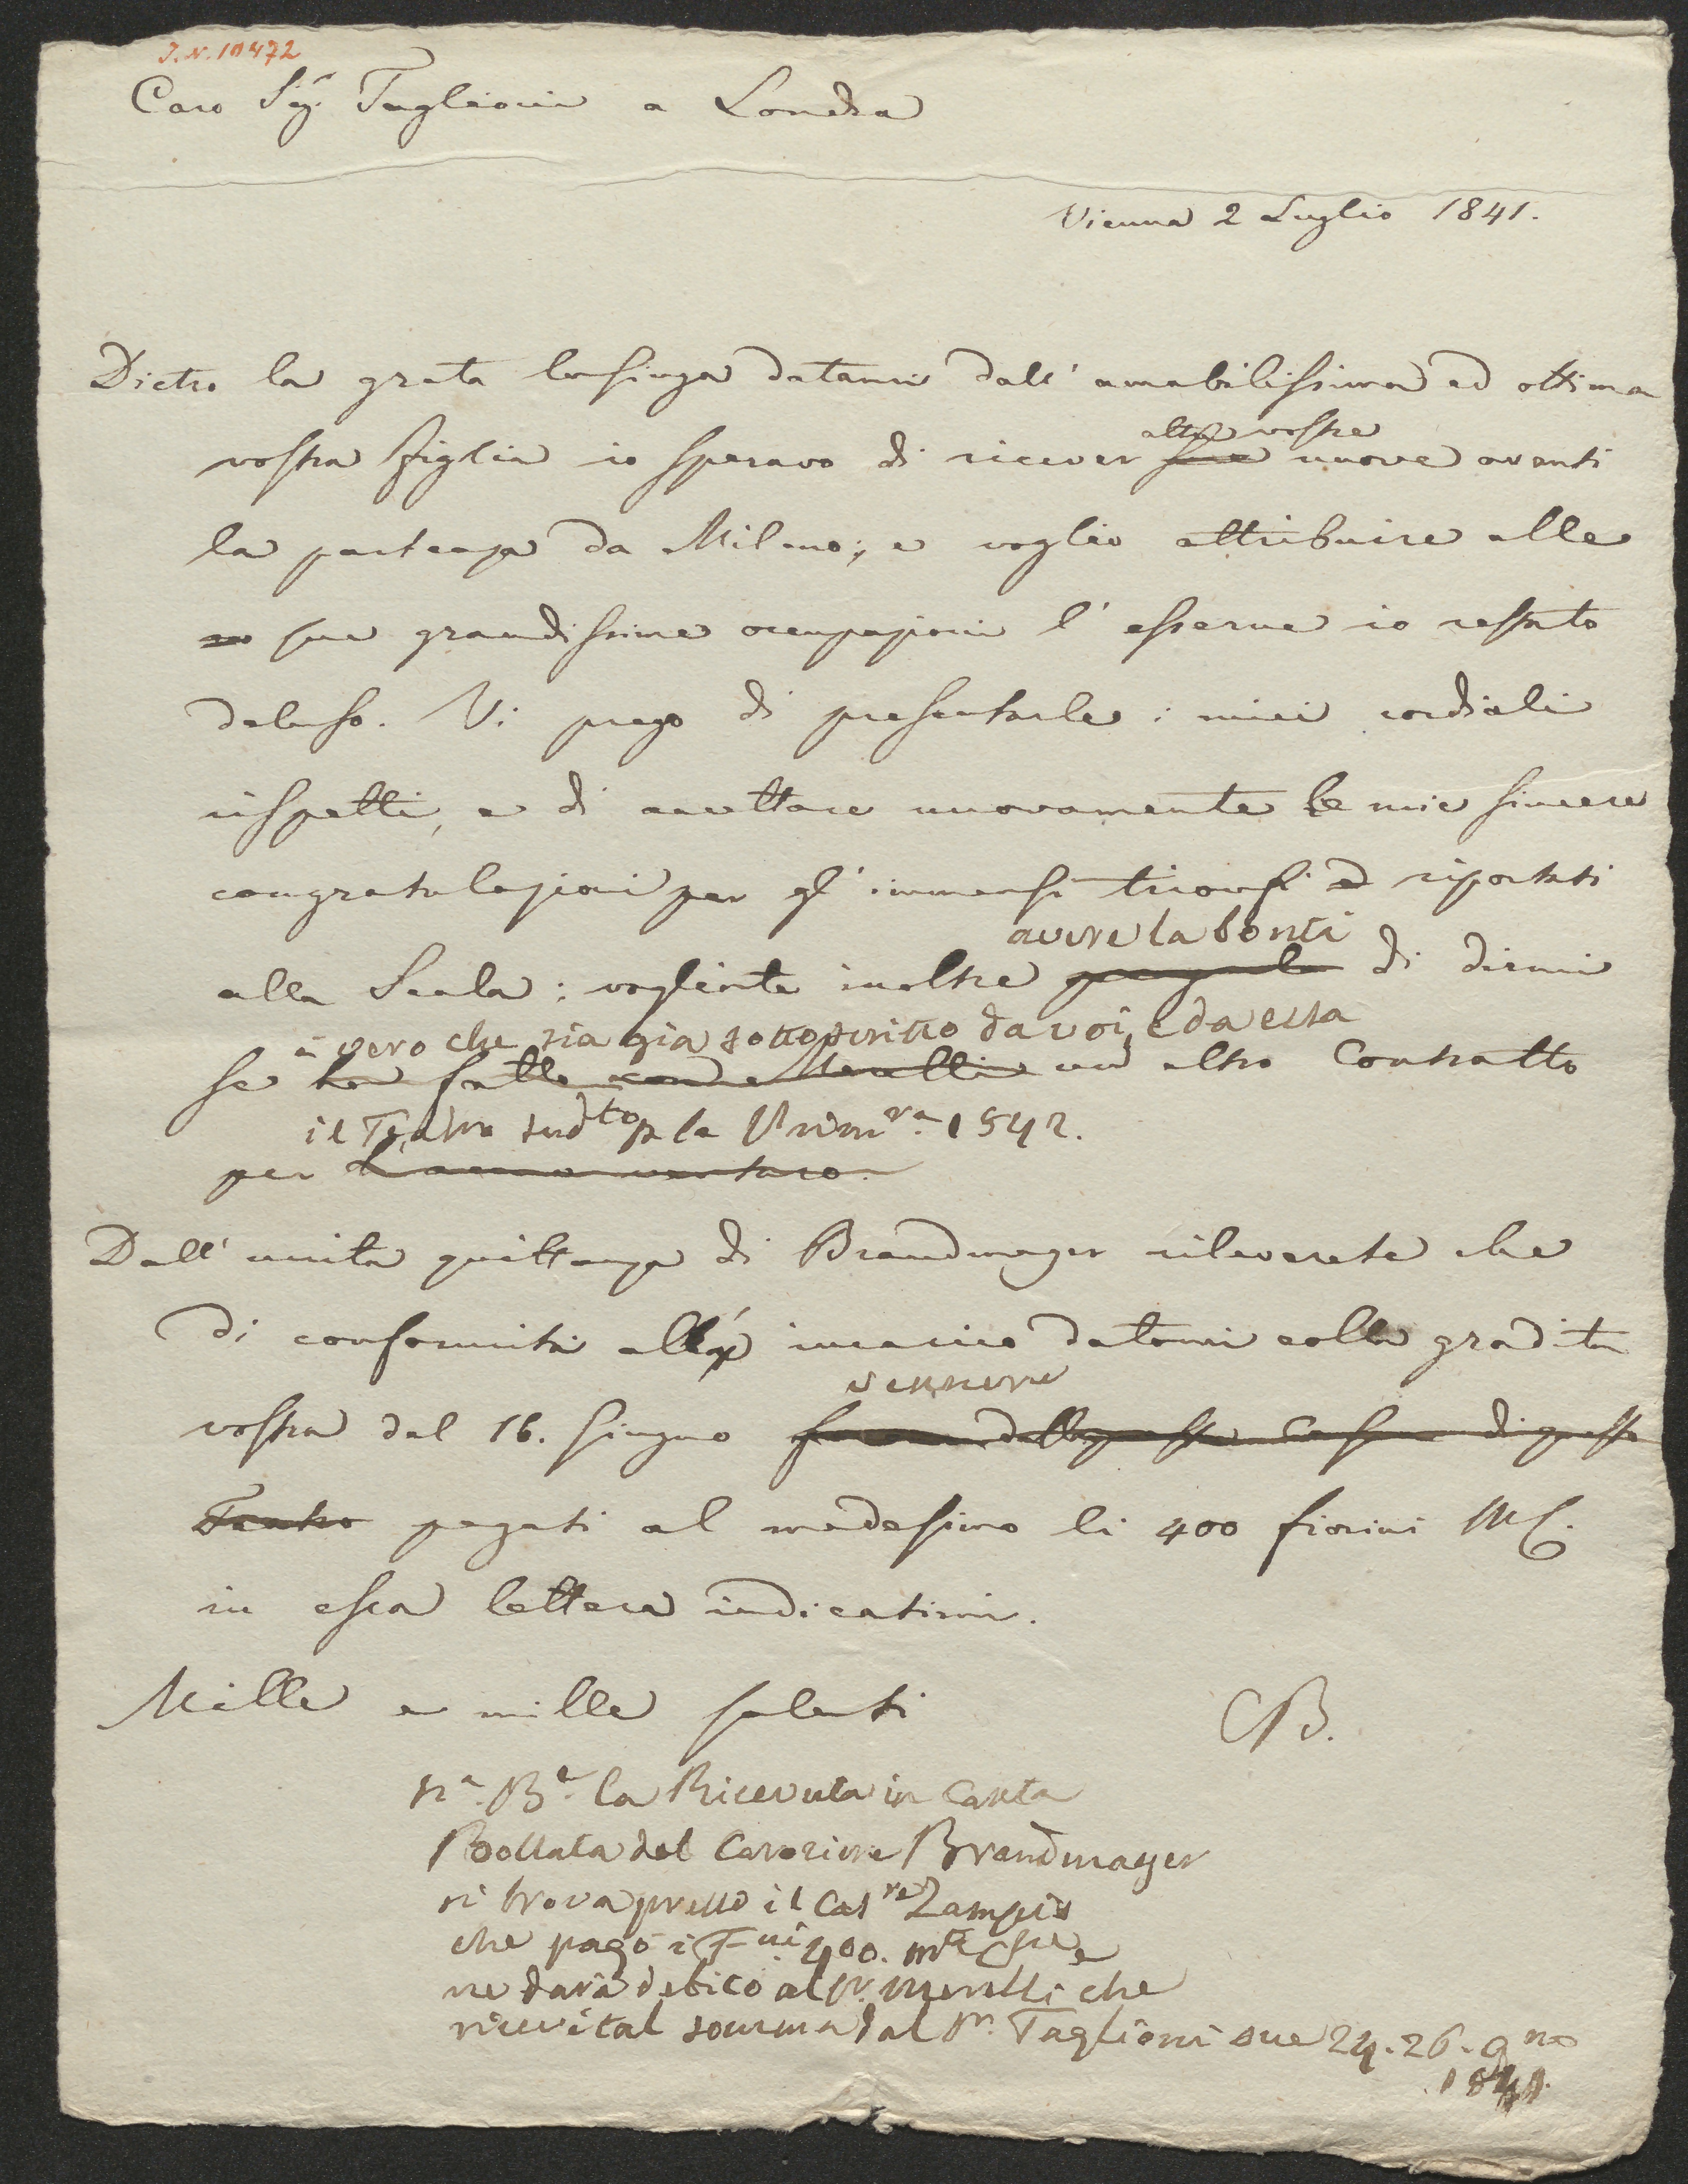 J.N. 10472
Caro Sigr. Taglioni a Londra
Vienna 2 Luglio 1841.
Dietro la grata lusinga datami dall' amabilissima ed ottima
altre vostre
vostra figlia io sperava di ricever sue nuove avanti
la partenza da Milano; e voglio attribuire alle
sue grandissime occupazioni l' esserne io restato
deluso. Vi prego di presentarle i miei cordiali
rispetti, e di accettare nuovamente le mie sincere
congratulazioni per gl' immensi trionfi riportati
avere la bontà
alla Scala; vogliate inoltre di dirmi
è vero che sia già sottoscritto da voi, e da essa
se ha fatto con Merelli un altro Contratto
il Teatro sudto p la Primra. 1842.
per L'anno venturo.
Dall' unita quittanza di Brandmayer rileverete che
di conformità all' incarico datomi colla gradita
vennero
vostra del 16. Giugno furono dalla Cassa di questo
Teatro pagati al medesimo li 400 fiorini MC.
in essa lettera indicatimi.
Mille e mille saluti CB.
Na. Be. la Ricevuta in Carta
Bollata del Carozziere Brandmayer
si trova presso il Casre Zampis
che pagò i Fni 400. mta
ne darà debito al Sr. Merelli che
ricevè tal somma dal Sr. Taglioni 24. 26. gno
1841.